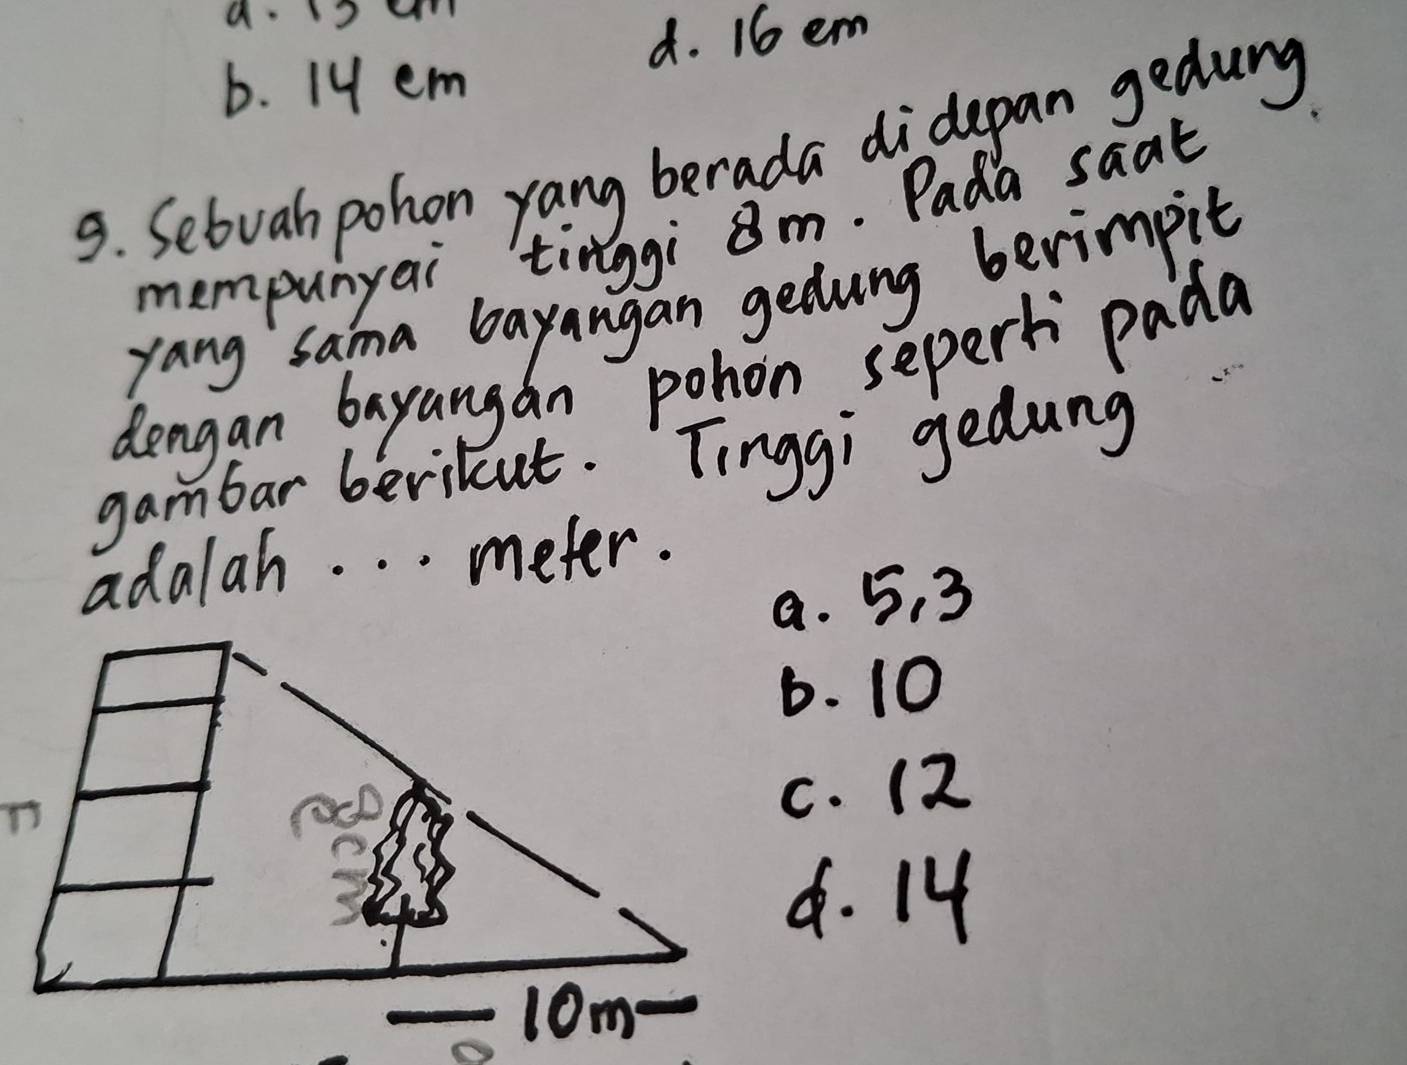 b. 14 em
d. 16 em
9. Sebuah pohon yang berada di depan gedung
mempunyai tinggi 8m. Pada saat
yang sama bayangan gedung berimpit
dengan bayangan pohon seperti pada
gambar berikut. Tinggi gedung
adalah ... meter.
a. 5,3
b. 10
c. 12
d. 14
10m